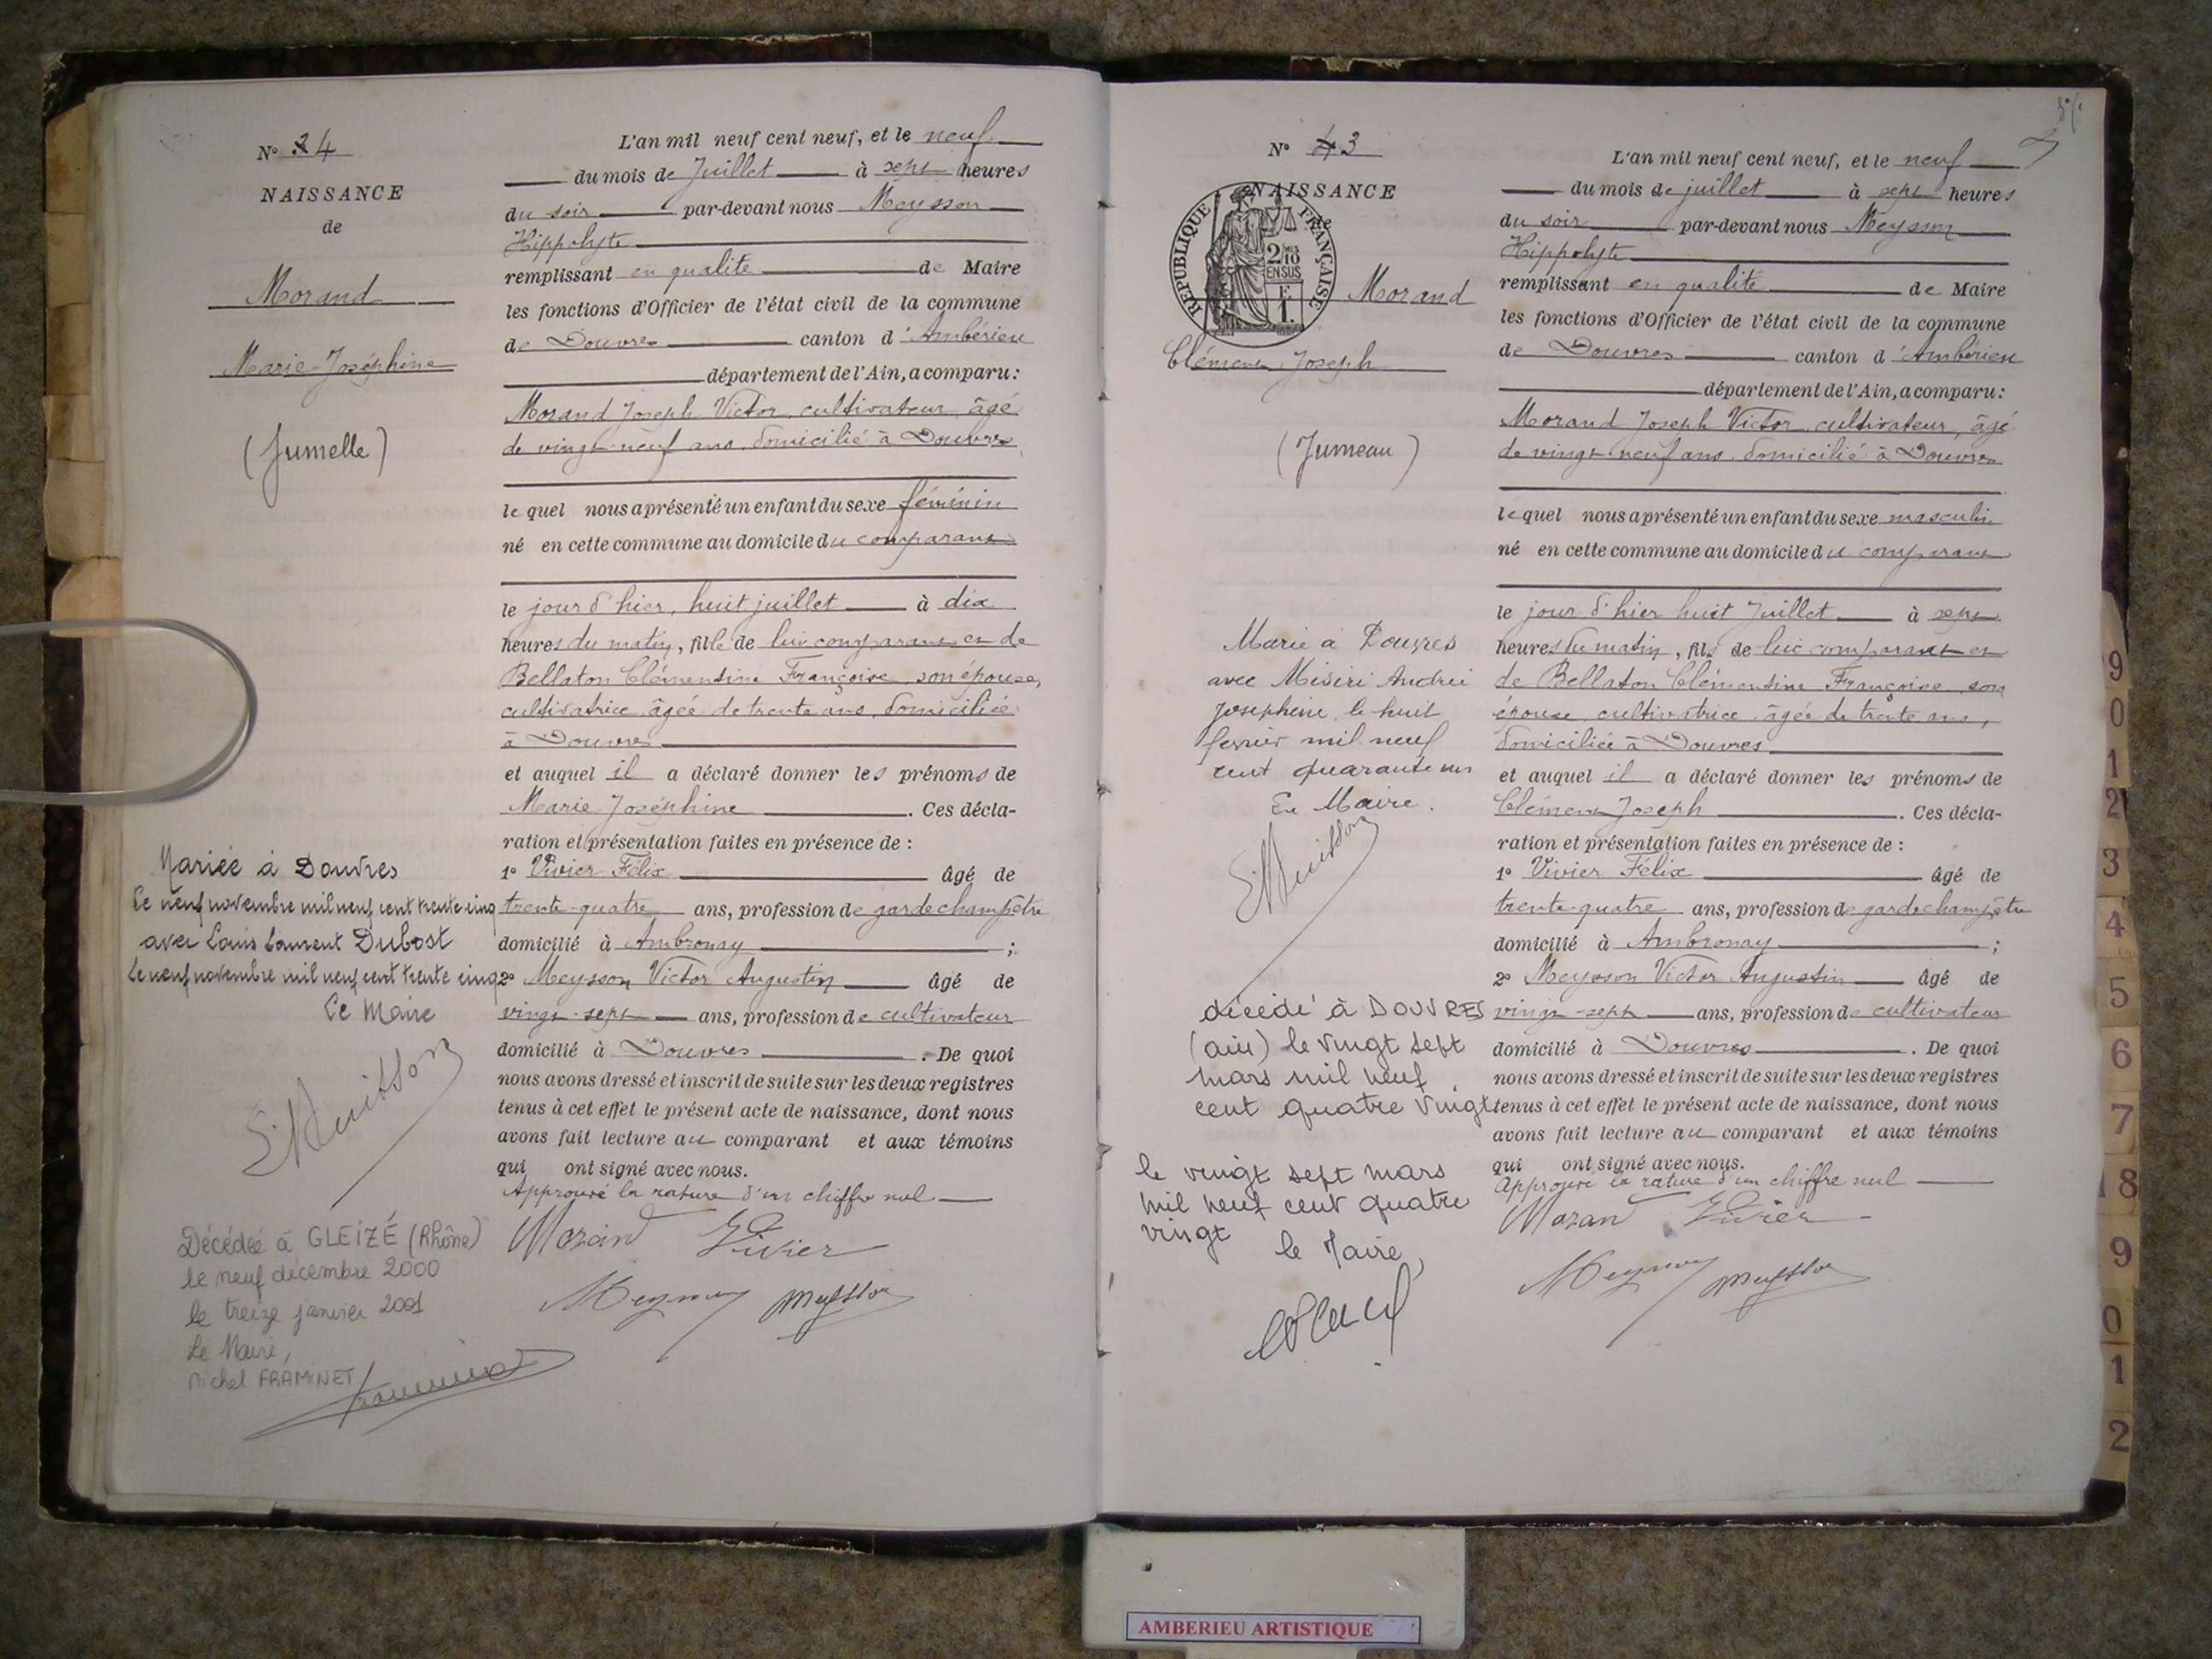 N° 4
NAISSANCE
de
Morand
Marie Joséphine
(Jumelle)
Mariée à Douvres
Le neuf novembre mil neuf cent trente cinq
avec Louis Laurent Dubost
Le neuf novembre mil neuf cent trente cinq
Le Maire
Décédée à GLEIZÉ (Rhône)
le neuf décembre 2000
le treize janvier 2001
Le Maire,
Michel FRAMINET
L'an mil neuf cent neuf, et le neuf
du mois de Juillet à sept heures
du soir par-devant nous Meysson
Hippolyte
remplissant en qualité de Maire
les fonctions d'Officier de l'état civil de la commune
de Douvres canton d'Ambérieu
département de l'Ain, a comparu:
Morand Joseph Victor, cultivateur, âgé
de vingt-neuf ans, domicilié à Douvres,
lequel nous a présenté un enfant du sexe féminin
né en cette commune au domicile du comparant
le jour d'hier, huit juillet à dix
heures du matin, fille de lui comparant et de
Bellaton Clémentine Françoise, son épouse,
cultivatrice âgée de trente ans, domiciliée
à Douvres
et auquel il a déclaré donner les prénoms de
Marie Joséphine. Ces décla-
ration et présentation faites en présence de :
1° Vivier Félix âgé de
trente-quatre ans, profession de garde champêtre
domicilié à Ambronay ;
2° Meysson Victor Augustin âgé de
vingt-sept ans, profession de cultivateur
domicilié à Douvres. De quoi
nous avons dressé et inscrit de suite sur les deux registres
tenus à cet effet le présent acte de naissance, dont nous
avons fait lecture au comparant et aux témoins
qui ont signé avec nous.
Approuvé la rature d'un chiffre nul
Morand Vivier
Meysson Meysson
N° 3
NAISSANCE
de
REPUBLIQUE FRANÇAISE
2/10
EN SUS
Morand
Clément Joseph
(Jumeau)
Marié à Douvres
avec Miviri Andrée
Josephine, le huit
fevrier mil neuf
cent quarante un
Le Maire.
décédé à DOUVRES
(ain) le vingt sept
mars mil neuf
cent quatre vingt
le vingt sept mars
mil neuf cent quatre
vingt le Maire,
L'an mil neuf cent neuf, et le neuf
du mois de juillet à sept heures
du soir par-devant nous Meysson
Hippolyte
remplissant en qualité de Maire
les fonctions d'Officier de l'état civil de la commune
de Douvres canton d'Ambérieu
département de l'Ain, a comparu:
Morand Joseph Victor, cultivateur, âgé
de vingt-neuf ans, domicilié à Douvres
lequel nous a présenté un enfant du sexe masculin
né en cette commune au domicile du comparant
le jour d'hier huit Juillet à sept
heures du matin, fils de lui comparant et
de Bellaton Clémentine Françoise, son
épouse, cultivatrice, âgée de trente ans,
domiciliée à Douvres
et auquel il a déclaré donner les prénoms de
Clément Joseph. Ces décla-
ration et présentation faites en présence de :
1° Vivier Félix âgé de
trente quatre ans, profession de garde champêtre
domicilié à Ambronay ;
2° Meysson Victor Augustin âgé de
vingt-sept ans, profession de cultivateur
domicilié à Douvres. De quoi
nous avons dressé et inscrit de suite sur les deux registres
tenus à cet effet le présent acte de naissance, dont nous
avons fait lecture au comparant et aux témoins
qui ont signé avec nous.
Approuvé la rature d'un chiffre nul
Morand Vivier
Meysson Meysson
9
0
1
2
3
4
5
6
7
18
9
0
1
2
AMBERIEU ARTISTIQUE